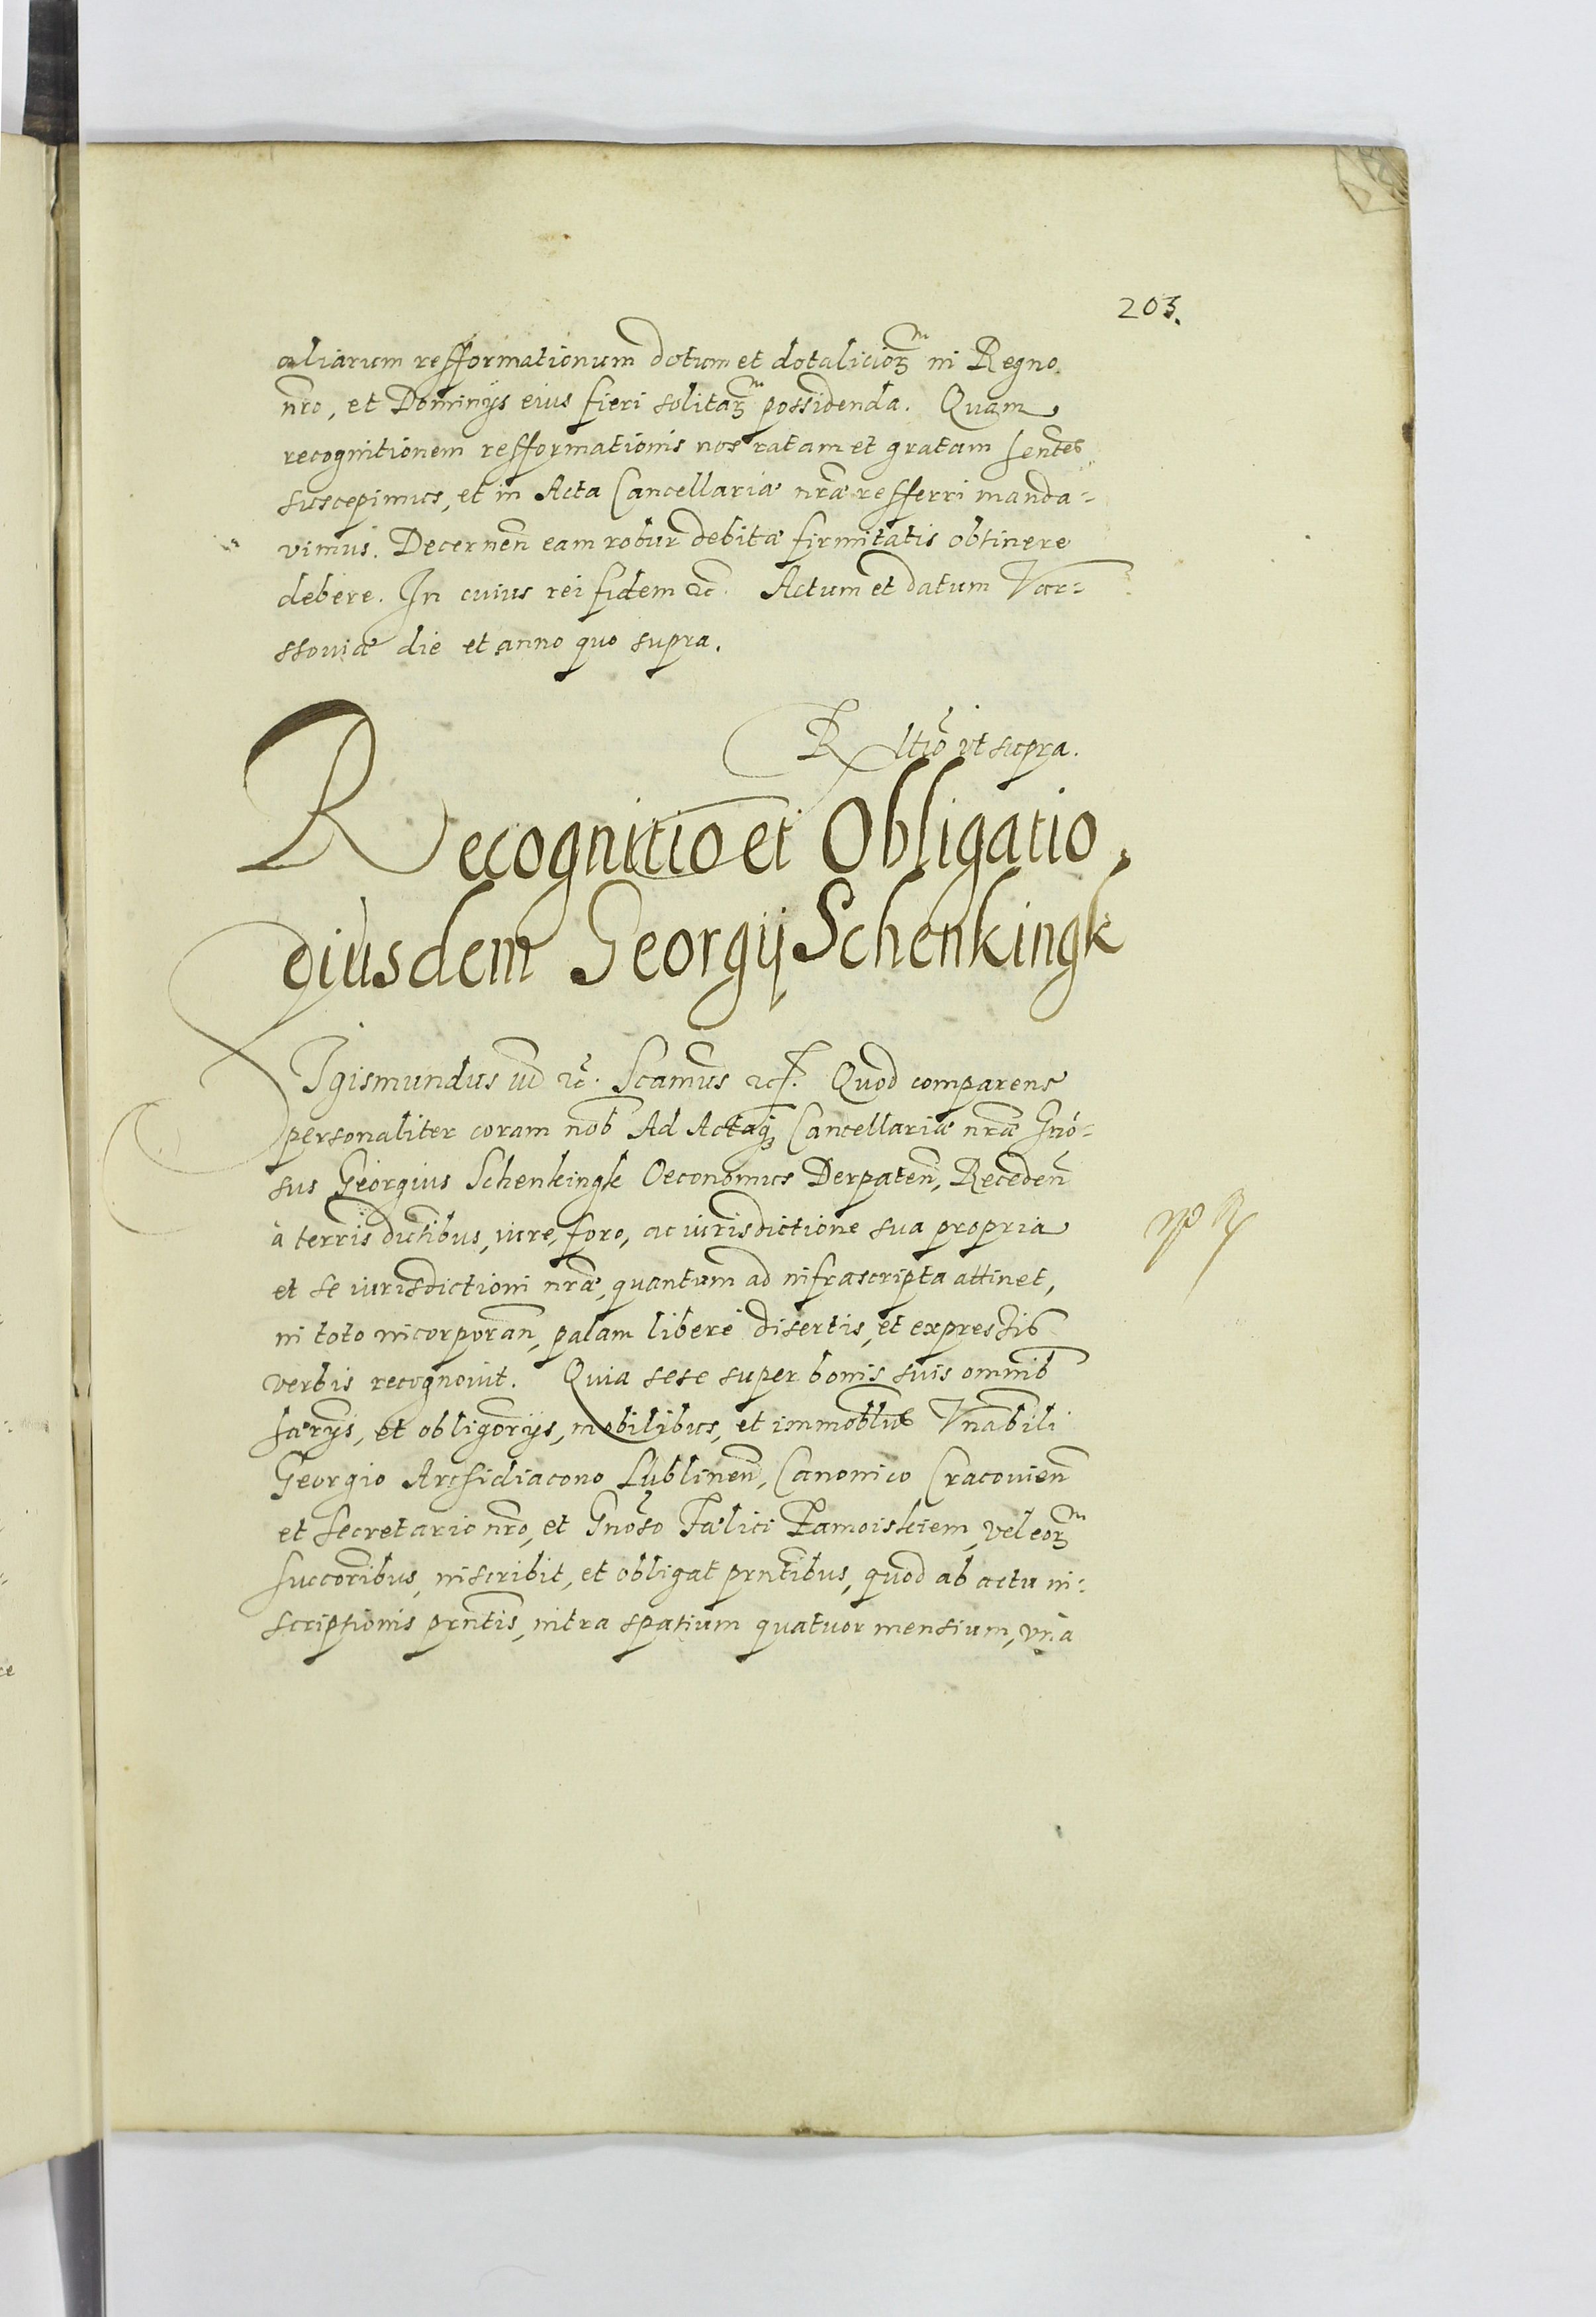 203.
aliarum refformationum dotum et dotalicioꝝ in Regno
nr̃o, et Dominijs eius fieri solitaꝝ possidenda. Quam
recognitionem refformationis nos ratam et gratam hentes
suscepimus, et in Acta Cancellariæ nr̃æ refferri manda-
vimus. Decernen̄ eam robur debitæ firmitatis obtinere
debere. In cuius rei fidem &c. Actum et datum Var-
ssoviæ die et anno quo supra.
Rltio vt supra.
Recognitio et Obligatio,
eiusdem Georgij Schenkingk
Sigismundus &c. Quod comparens
personaliter coram nob̄ Ad Actaq; Cancellariæ nr̃æ Gnō-
sus Georgius Schenkingk Oeconomus Derpaten̄, Receden̄
à terris dictibus, iure, foro, ac iurisdictione sua propria
et se iurisdictioni nr̃æ, quantum ad infrascripta attinet,
in toto incorporan̄, palam liberè disertis, et expressib
verbis recognovit. Quia sese super bonis suis omnib̄
hærijs, et obligorijs, mobilibus, et immoblibus Vnābili
Georgio Archidiacono Lublinen̄, Canonico Cracovien̄
et Secretario nr̃o, et Gnōso Fælici Zamoiskiem, vel eoꝝ
succoribus, inscribit, et obligat prn̄tibus, quod ab actu in-
scriptionis prn̄tis, intra spatium quatuor mensium, vnà